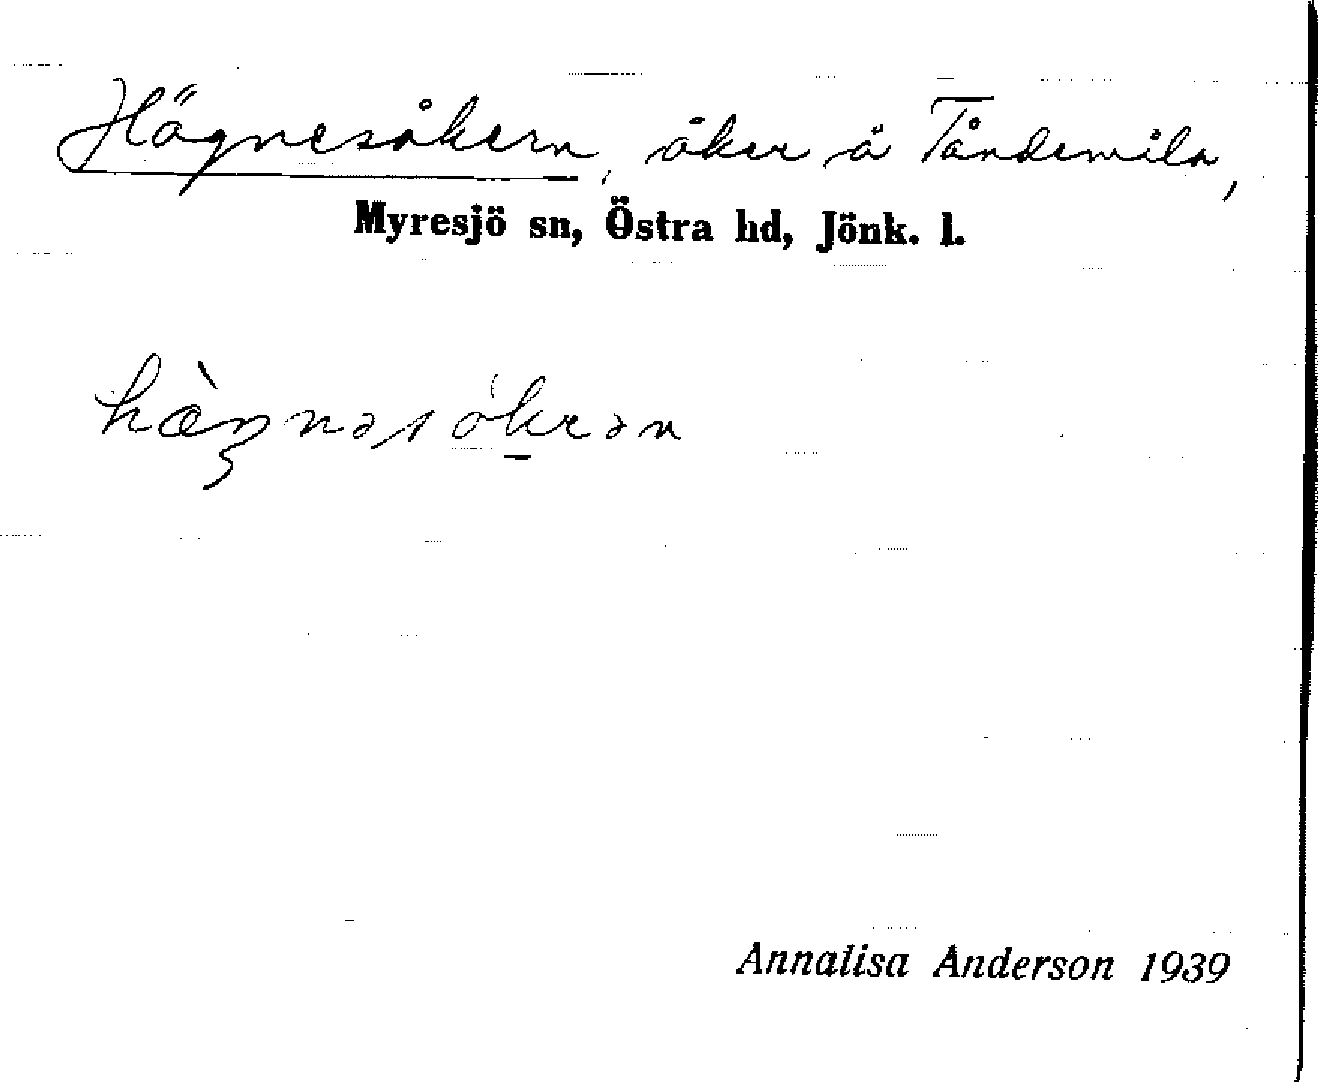 Hägnesåkern, åker å Tåndemåla,
Myresjö sn, Östra hd, Jönk. l.
hæ̀ŋnəsåkrən
Annalisa Anderson 1939